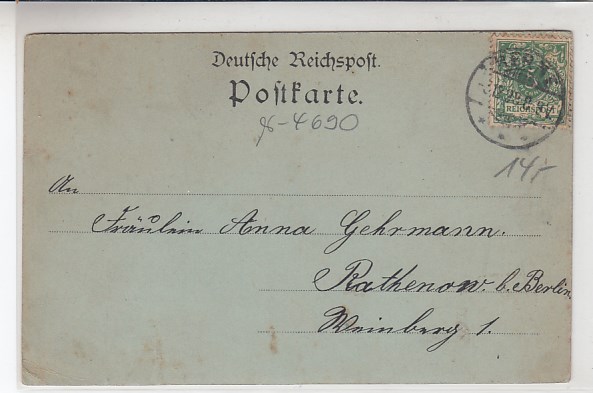 Deutsche Reichspost.
Postkarte.
8-4690
14,-
An
Fräulein Anna Gehrmann.
Rathenow. b. Berlin.
Weinberg 1.
REICHSPOST